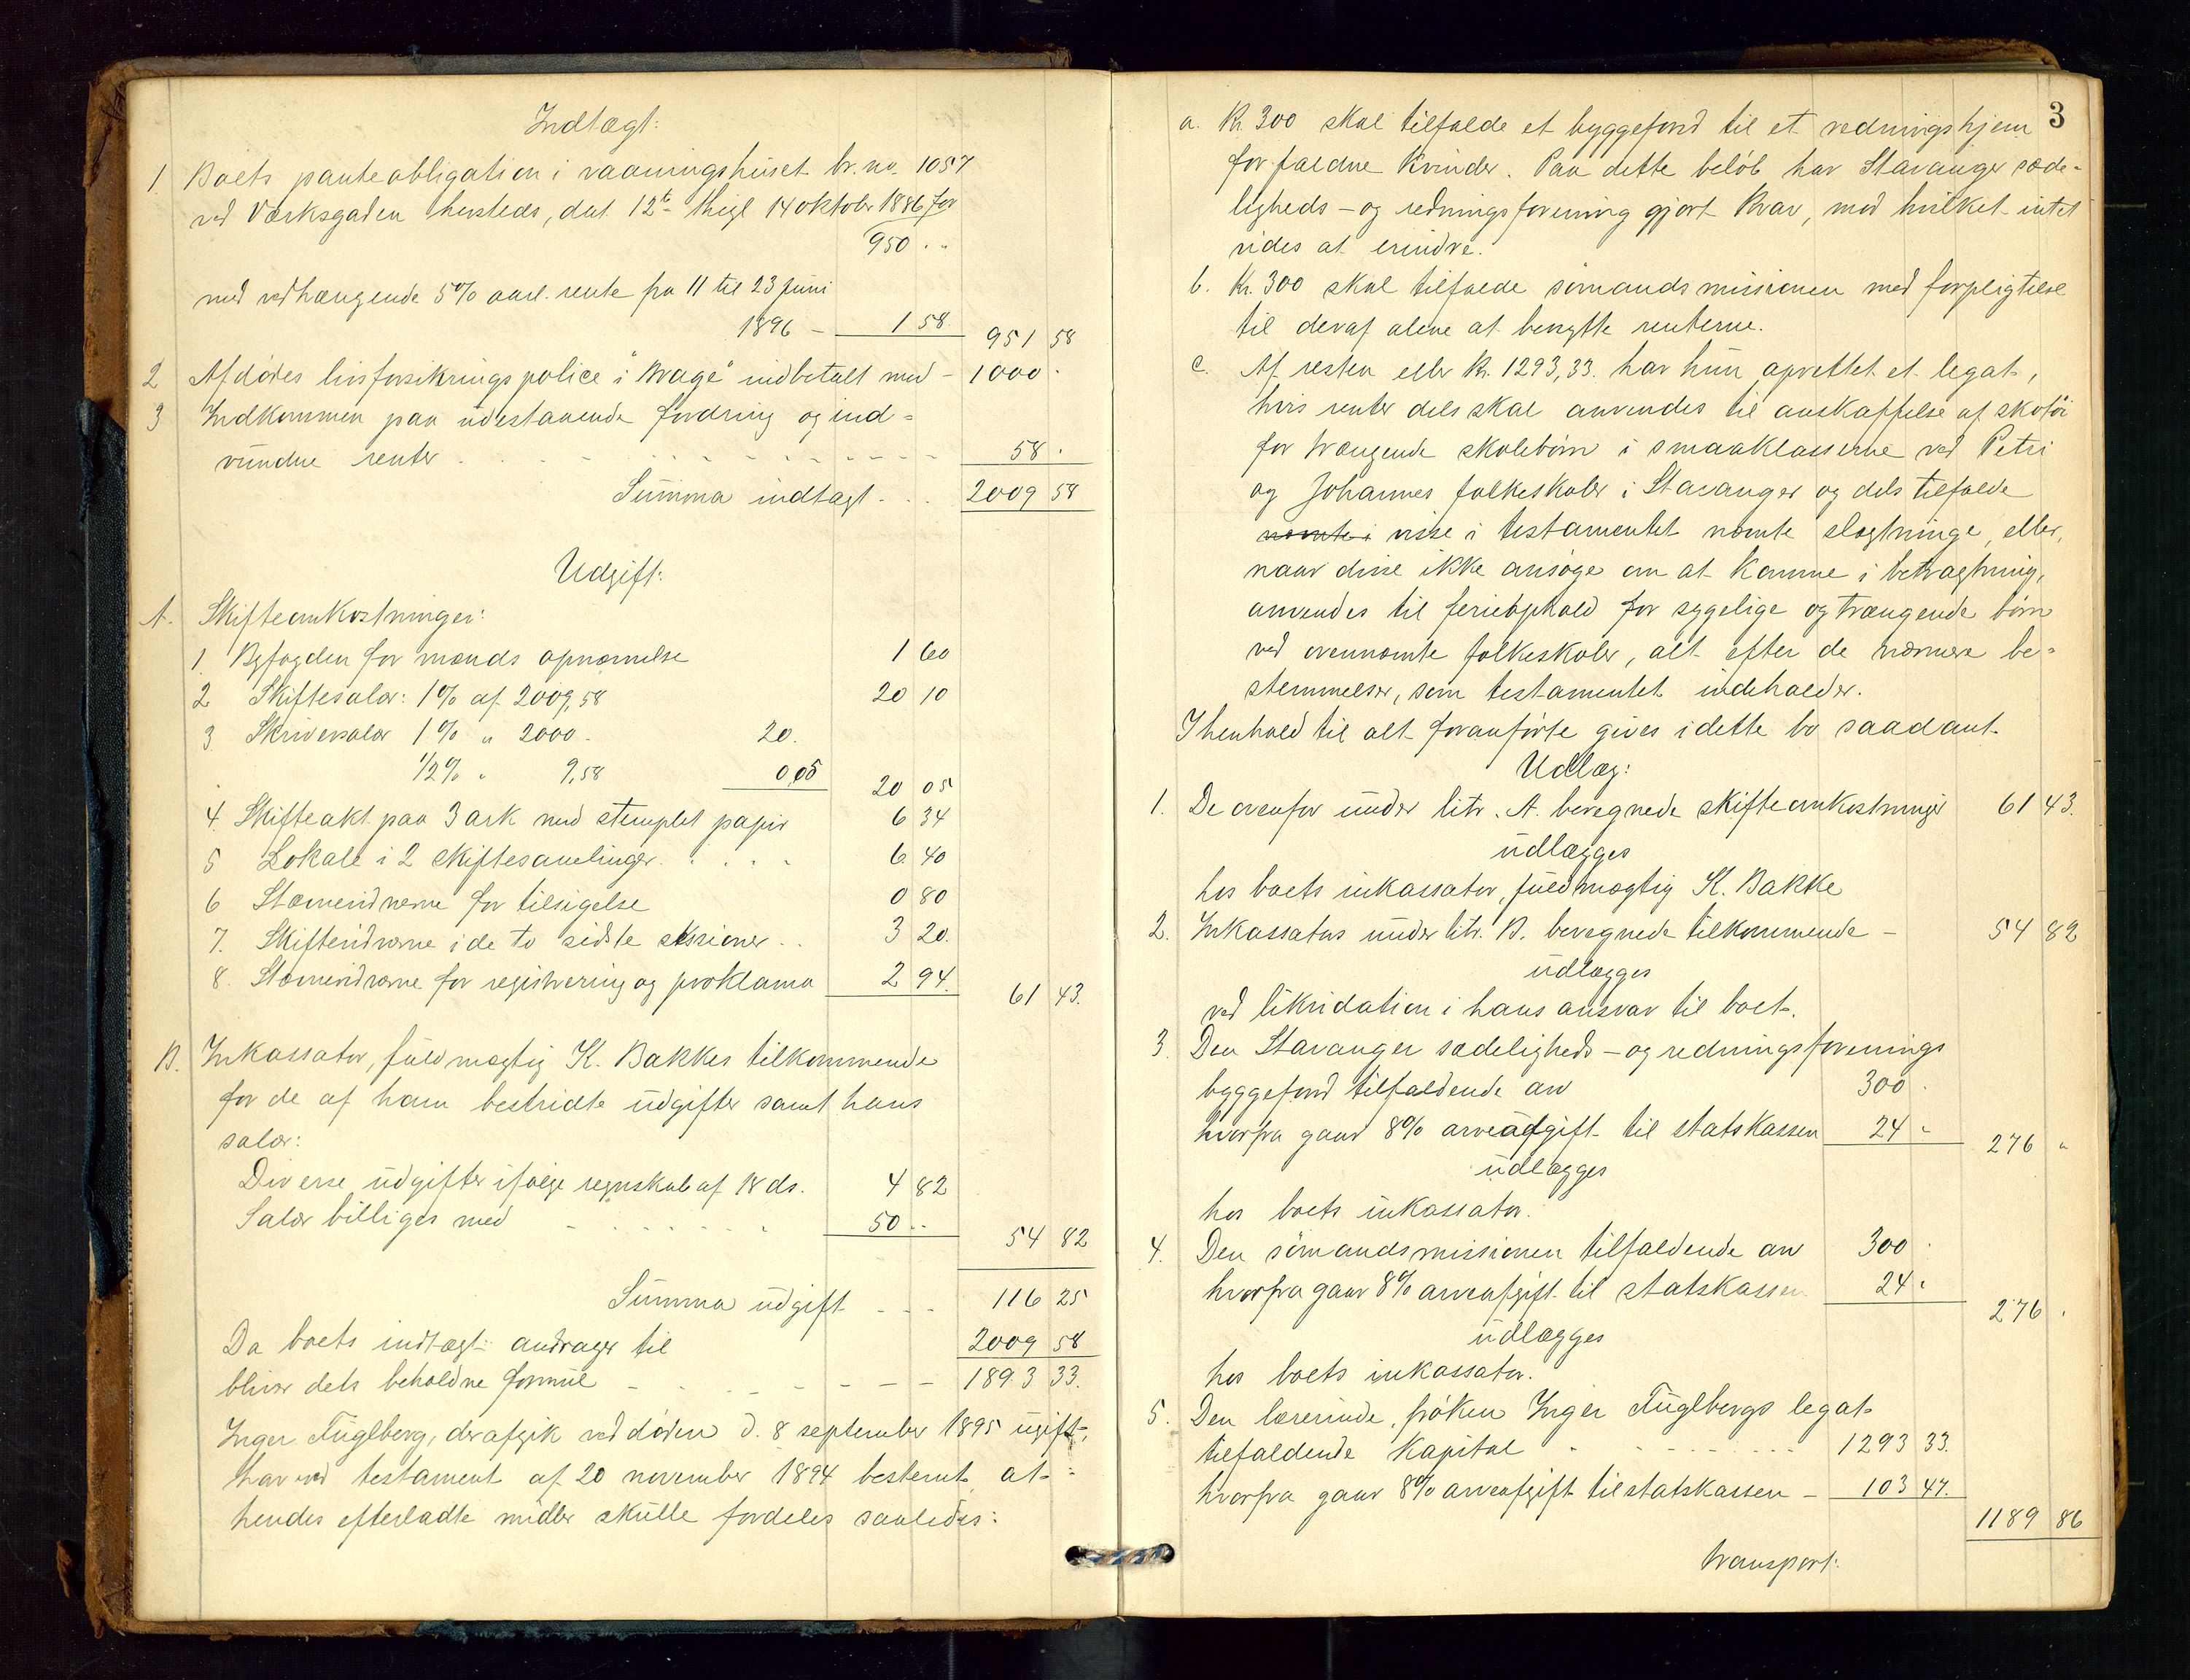 Indtægt:
1. Boets panteobligation i vaaningshuset br. no. 1057
ved Værksgaden hersteds, dat. 12te thigl 14 oktober 1886 for
950 . "
med vedhængende 5% aarl. rente fra 11 til 23 juni
1896 – 1 58 951 58
2 Afdødes livsforsikringspolice i "Brage" indbetalt med – 1000 .
3 Indkommen paa udestaaende fordring og ind=
vundne renter . . . . 58 .
Summa indtægt . . . 2009 58
Udgift:
A. Skifteomkostninger:
1. Byfogden for mænds opnævnelse 1 60
2 Skiftesalær: 1% af 2009,58 20 10
3. Skriversalær 1% " 2000 - 20.
1/2% " 9,58 0,05 20 05
4. Skifteakt paa 3 ark med stemplet papir 6 34
5 Lokale i 2 skiftesamlinger . . . . 6 40
6 Stævnevidnerne for tilsigelse 0 80
7. Skiftevidnerne i de to sidste sessioner . . 3 20.
8. Stævnevidnerne for registrering og proklama 2 94. 61 43.
B. Inkassator, fuldmægtig K. Bakkes tilkommende
for de af ham bestridte udgifter samt hans
salær:
Diverse udgifter ifølge regnskab af 18 ds. 4 82
Salær billiges med . . . . 50 " 54 82
Summa udgift - - - 116 25
Da boets indtægt andrager til 2009 58
bliver dets beholdne formue - - - - 1893 33.
Inger Fuglberg, der afgik ved døden d. 8 september 1895 ugift,
har ved testament af 20 november 1894 bestemt, at
hendes efterladte midler skulle fordeles saaledes:
3
a. Kr 300 skal tilfalde et byggefond til et redningshjem
for faldne kvinder. Paa dette beløb har Stavanger sæde=
ligheds – og redningsforening gjort krav, mod hvilket intet
vides at erindre.
b. Kr. 300 skal tilfalde sømandsmissionen med forpligtelse
til deraf alene at benytte renterne.
c. Af resten eller kr. 1293,33. har hun oprettet et legat,
hvis renter dels skal anvendes til anskaffelse af skotøi
for trængende skolebørn i smaaklasserne ved Petri
og Johannes folkeskoler i Stavanger og dels tilfalde
nævnte i visse i testamentet nævnte slægtninge, eller,
naar disse ikke ansøge om at komme i betragtning,
anvendes til ferieophold for sygelige og trængende børn
ved ovennævnte folkeskoler, alt efter de nærmere be=
stemmelser, som testamentet indeholder.
I henhold til alt foranførte gives i dette bo saadant
Udlæg:
1. De ovenfor under litr. A. beregnede skifteomkostninger 61 43.
udlægges
hos boets inkassator, fuldmægtig K. Bakke
2. Inkassators under litr. B. beregnede tilkommende – 54 82
udlægges
ved likvidation i hans ansvar til boet.
3. Den Stavanger sædeligheds – og redningsforenings
byggefond tilfaldende arv 300 .
hvorfra gaar 8% arveafgift til statskassen 24 " 276 "
udlægges
hos boets inkassator.
4. Den sømandsmissionen tilfaldende arv 300 .
hvorfra gaar 8% arveafgift til statskassen 24 " 276 .
udlægges
hos boets inkassator.
5. Den lærerinde, frøken Inger Fuglbergs legat
tilfaldende kapital . . . . 1293 33.
hvorfra gaar 8% arveafgift til statskassen – 103 47. 1189 86
transport: